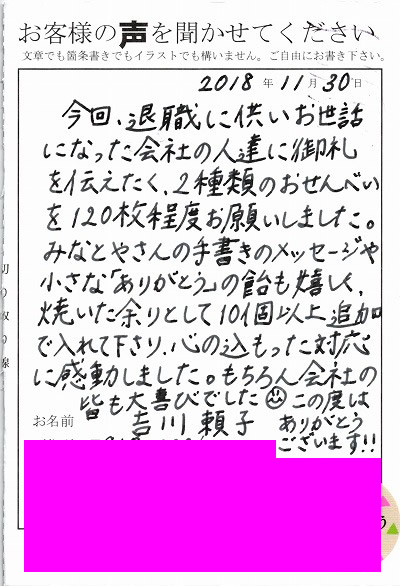 お客様の声を聞かせてください
文章でも箇条書きでもイラストでも構いません。ご自由にお書き下さい。
2018年11月30日
今回、退職に供いお世話
になった会社の人達に御礼
を伝えたく、2種類のおせんべい
を120枚程度お願いしました。
みなとやさんの手書きのメッセージや
小さな「ありがとう」の飴も嬉しく、
焼いた余りとして10個以上追加
で入れて下さり、心の込もった対応
に感動しました。もちろん会社の
皆も大喜びでした この度は
お名前 吉川頼子 ありがとう
ございます!!
切り取り線
う